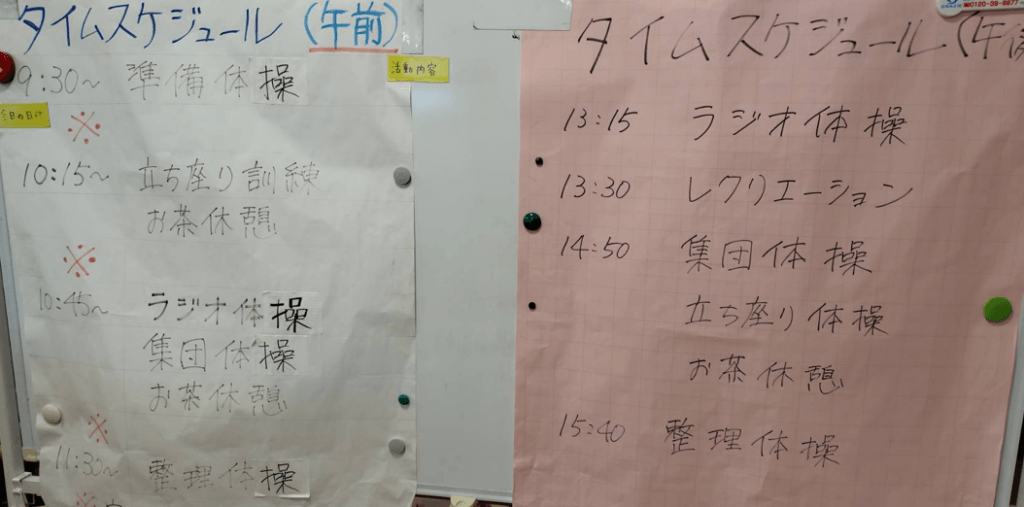 タイムスケジュール(午前)
9:30~ 準備体操
活動内容
今日の日付
※
10:15~ 立ち座り訓練
お茶休憩
※
10:45~ ラジオ体操
集団体操
お茶休憩
※
11:30~ 整理体操
※
タイムスケジュール(午後
13:15 ラジオ体操
13:30 レクリエーション
14:50 集団体操
立ち座り体操
お茶休憩
15:40 整理体操